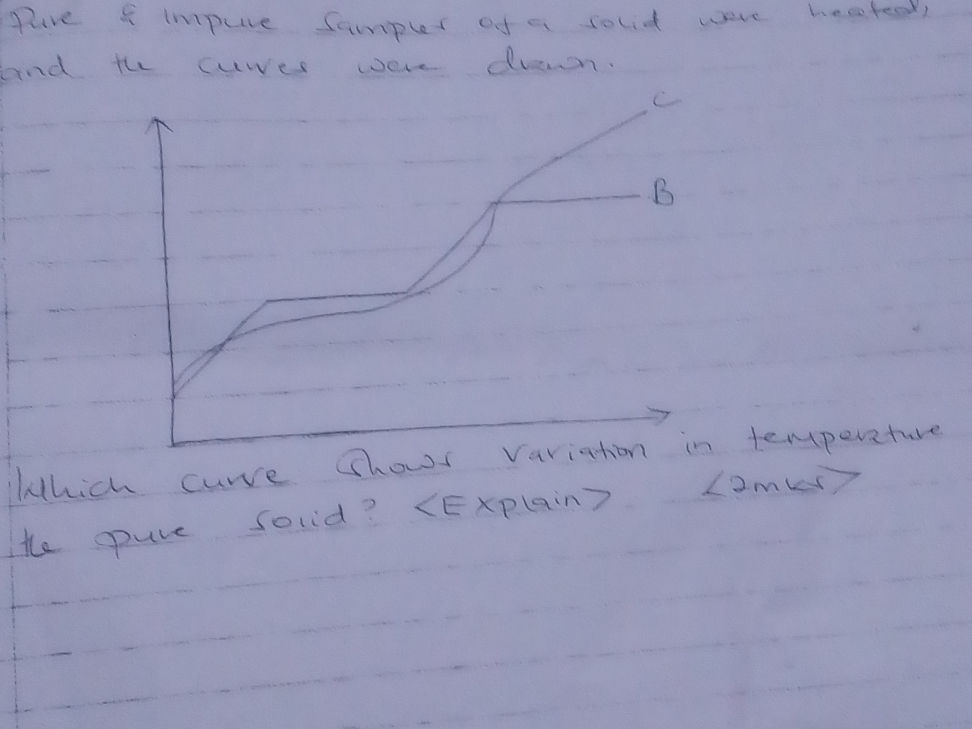 Pure & impure samples of a solid were heated,
and the curves were drawn.
C
B
Which curve shows variation in temperature
the pure solid? <Explain> <2mks>